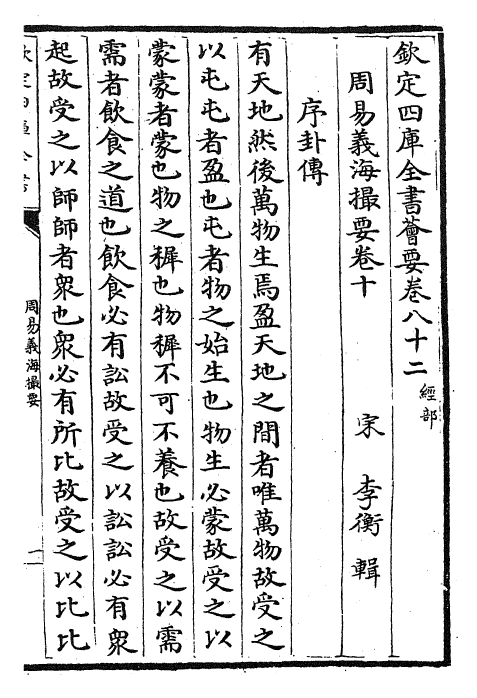 欽定四庫全書薈要卷八十二
經部
周易義海撮要卷十
宋 李衡 輯
序卦傳
有天地然後萬物生焉盈天地之間者唯萬物故受之
以屯屯者盈也屯者物之始生也物生必蒙故受之以
蒙蒙者蒙也物之穉也物穉不可不養也故受之以需
需者飲食之道也飲食必有訟故受之以訟訟必有衆
起故受之以師師者衆也衆必有所比故受之以比比
欽定四庫全書
周易義海撮要
一